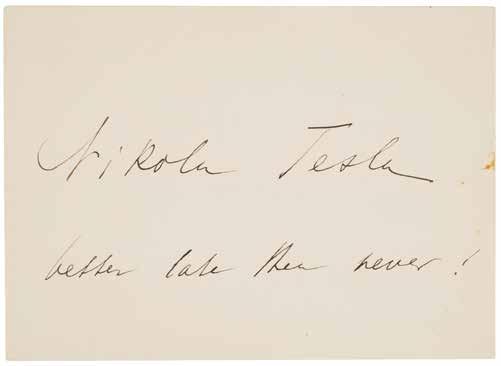 Nikola Tesla
better late then never!